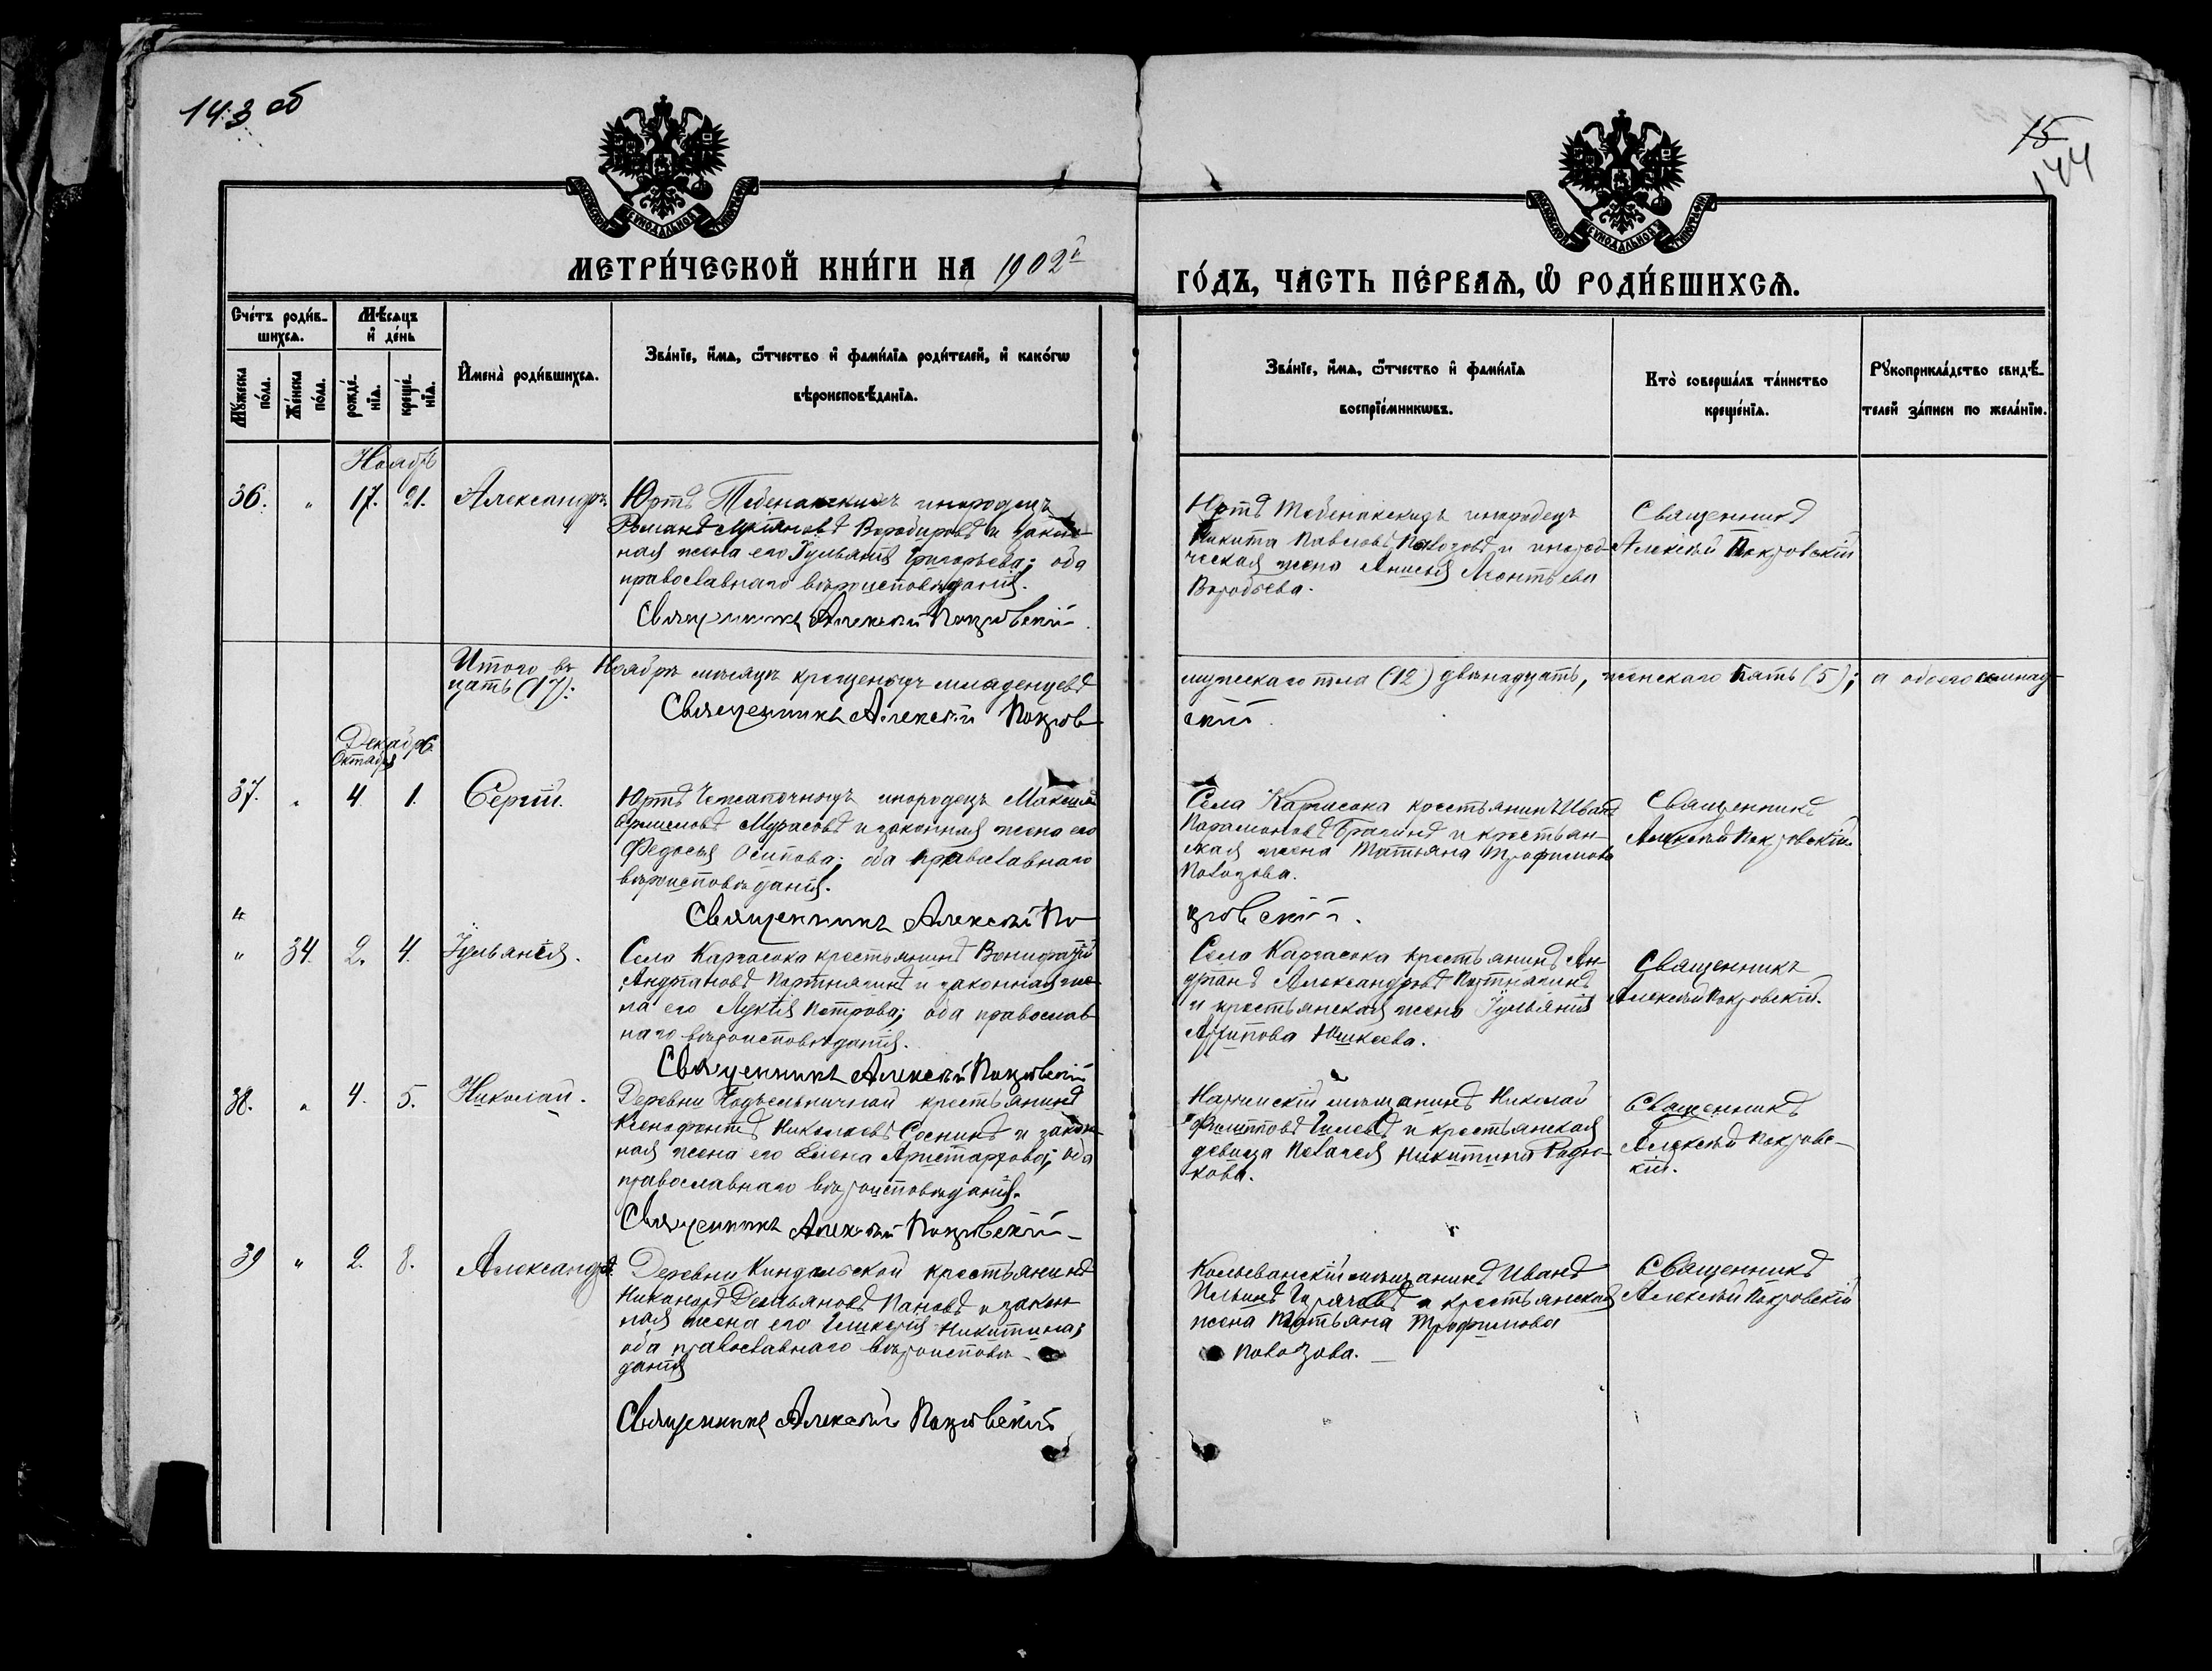 143 об
15
144
МЕТРИ́ЧЕСКОЙ КНИ́ГИ НА 1902й
ГО́ДЪ, ЧА́СТЬ ПЕ́РВАѦ, Ѡ҆ РОДИ́ВШИХСѦ.
Сче́тъ роди́в-
шихсѧ.
Мꙋ́жеска по́ла.
Же́нска по́ла.
Мѣ́сѧцъ
и҆ де́нь
рожде́-
нїѧ.
креще́-
нїѧ.
И҆мена̀ роди́вшихсѧ.
Зва́нїе, и҆́мѧ, ѻ҆́тчество и҆ фами́лїѧ роди́телей, и҆ како́гѡ
вѣроисповѣ́данїѧ.
Зва́нїе, и҆́мѧ, ѻ҆́тчество и҆ фами́лїѧ
воспрїе́мникѡвъ.
Кто̀ соверша́лъ та́инство
креще́нїѧ.
Рꙋкоприкла́дство свидѣ́-
телей за́писи по жела́нїю.
Ноябрь
36. " 17. 21. Александръ.
Юртъ инородецъ
Романъ Воробьровъ и закон-
ная жена его Іульянія Григорьева; оба
православнаго вѣроисповѣданія.
Священникъ Алексѣй Покровскій
Юртъ инородецъ
Никита Павловъ и инород-
ческая жена Анисья Леонтьева
Воробьева.
Священникъ
Алексѣй Покровскій
Итого въ Ноябрѣ мѣсяцѣ крещеныхъ младенцевъ мужескаго пола (12) двѣнадцать, женскаго пять (5); а обоего семнад-
цать (17).
Священникъ Алексѣй Покров-
скій.
Декабрь
Октября
37. " 4. 1. Сергій.
Юртъ инородецъ Максимъ
Мурасовъ и законная жена его
Федосья Осипова; оба православнаго
вѣроисповѣданія.
Священникъ Алексѣй По-
кровскій.
Села Каргасока крестьянинъ Иванъ
Парамоновъ Брагинъ и крестьян-
ская жена Татьяна Трофимова
Повозова.
Священникъ
Алексѣй Покровскій.
" 34. 2. 4. Іульянія.
Села Каргасока крестьянинъ Вонифатій
Андріановъ Портнягинъ и законная же-
на его Лукія Петрова; оба православ-
наго вѣроисповѣданія.
Священникъ Алексѣй Покровскій
Села Каргасока крестьянинъ Ан-
дріанъ Александровъ Портнягинъ
и крестьянская жена Іульянія
Архипова Юшкеева.
Священникъ
Алексѣй Покровскій.
38. " 4. 5. Николай.
Деревни Подъельничной крестьянинъ
Ксенофонтъ Николаевъ Соснинъ и закон-
ная жена его Елена Аристархова; оба
православнаго вѣроисповѣданія.
Священникъ Алексѣй Покровскій
Нарымскій мѣщанинъ Николай
Филипповъ и крестьянская
девица Пелагея Никитина Родю-
кова.
Священникъ
Алексѣй Покровс-
кій.
39 " 2. 8. Александръ.
Деревни Киндальской крестьянинъ
Никаноръ Демьяновъ Пановъ и закон-
ная жена его Гликерія Никитина;
оба православнаго вѣроисповѣ-
данія
Священникъ Алексѣй Покровскій
Колыванскій мѣщанинъ Иванъ
Ильинъ Горячевъ и крестьянская
жена Татьяна Трофимова
Повозова.
Священникъ
Алексѣй Покровскій